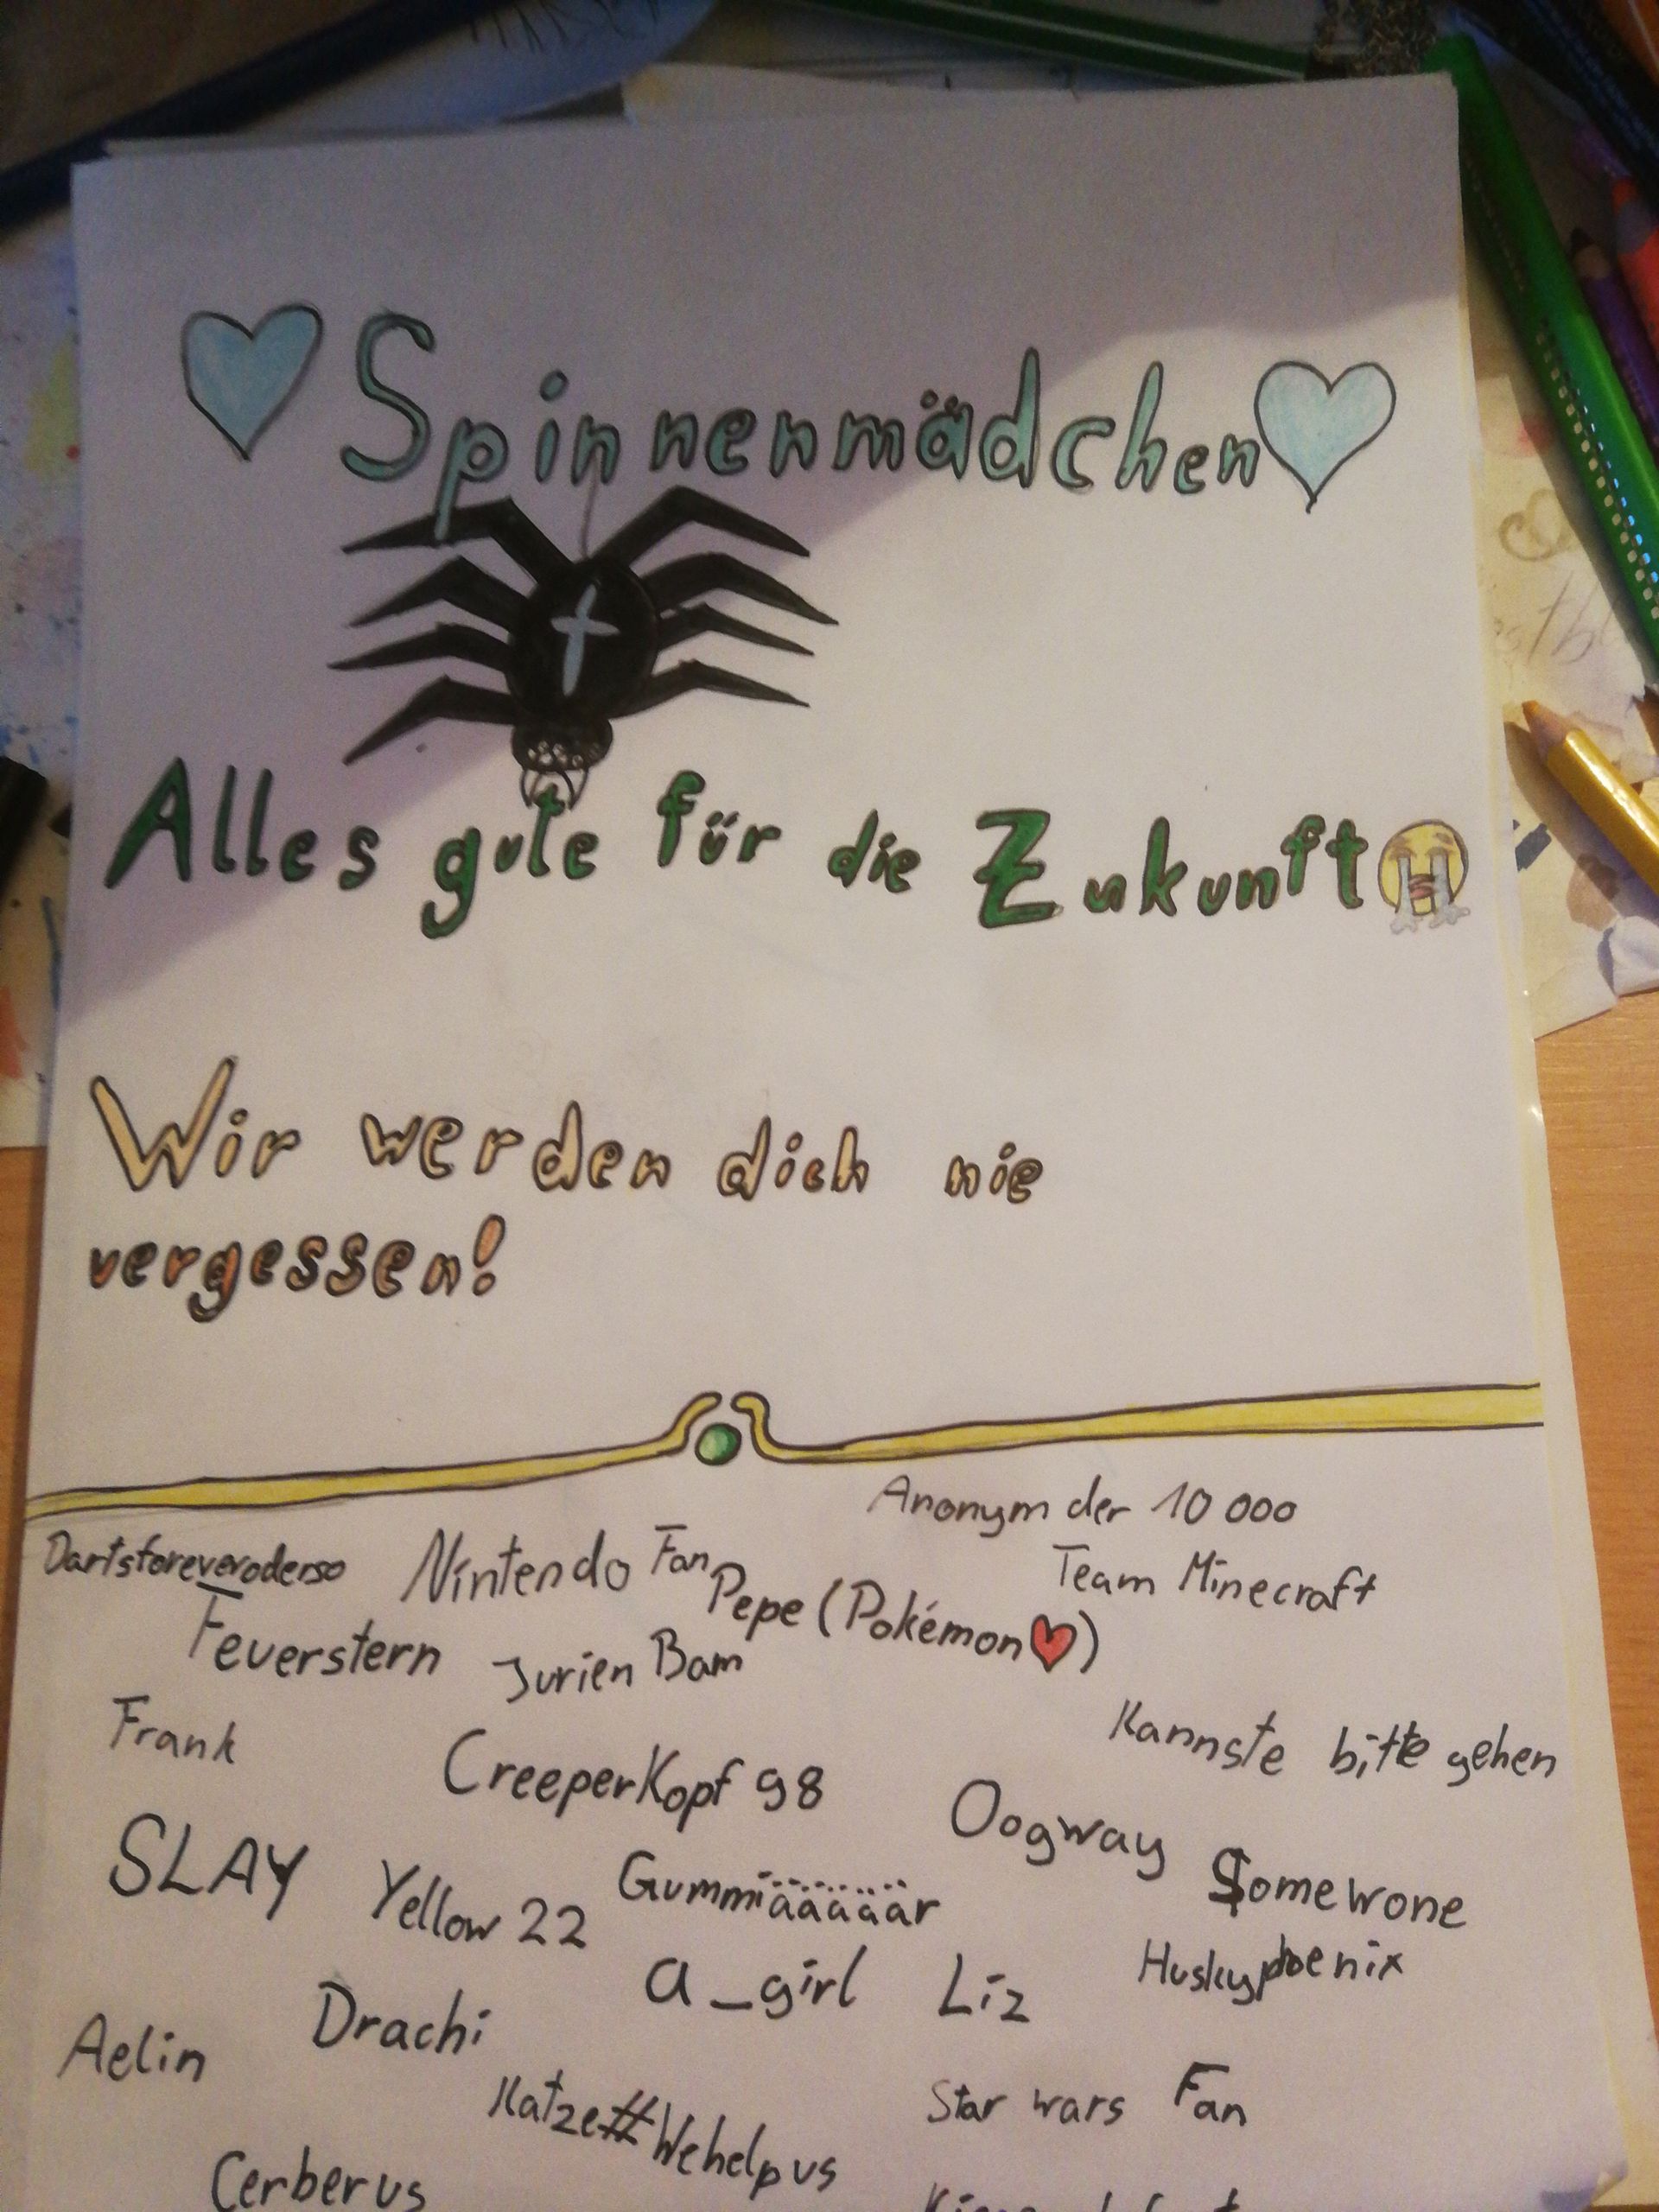 Spinnenmädchen
Alles gute für die Zukunft
Wir werden dich nie
vergessen!
Anonym der 10 000
Dartsforeveroderso
Nintendo Fan
Team Minecraft
Pepe (Pokémon♥)
Feuerstern
Jurien Bam
Frank
Kannste bitte gehen
CreeperKopf 98
Oogway
SLAY
Yellow 22
Gummiäääääär
Somewrone
a_girl
Liz
Huskyphoenix
Aelin
Drachi
Katze#Wehelpus
Star wars Fan
Cerberus